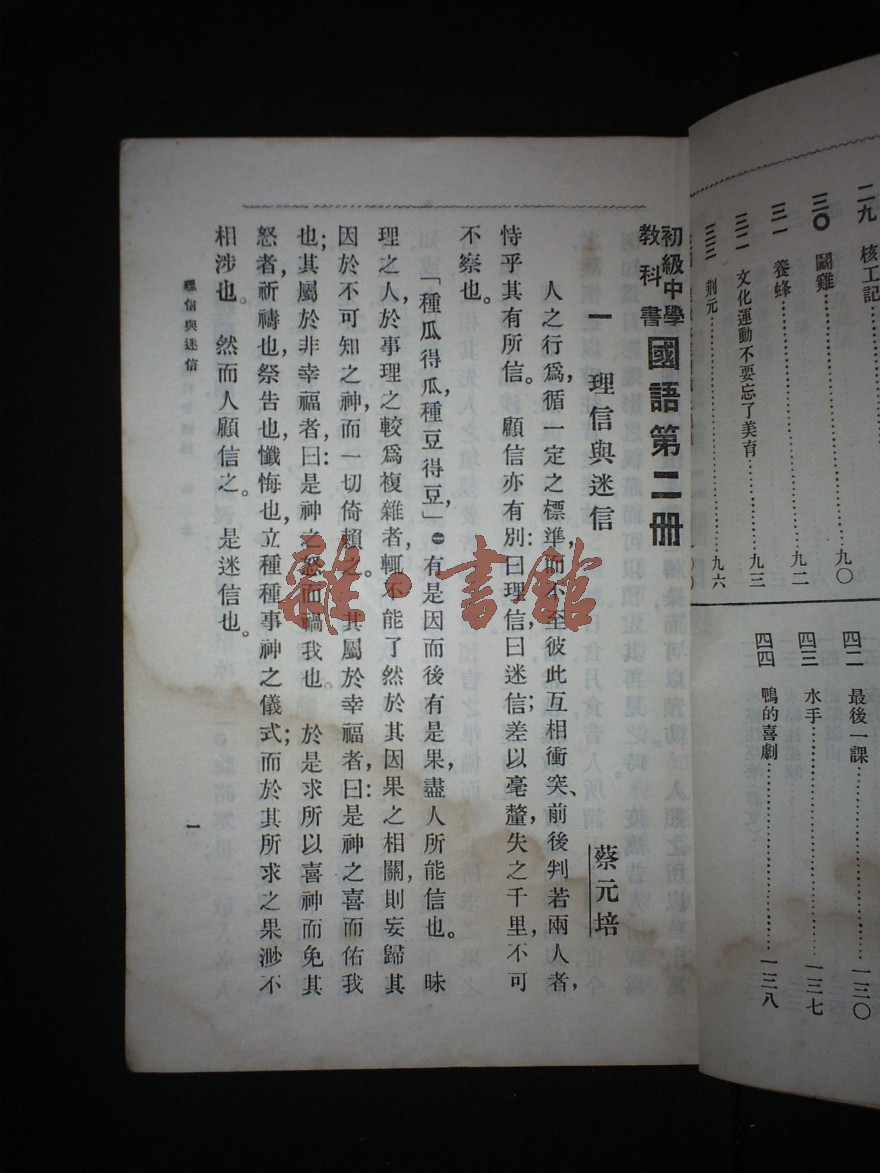 二九 核工記
三〇 鬭雞 九〇
三一 養蜂 九二
三二 文化運動不要忘了美育 九三
三三 荆元 九六
四二 最後一課 一三〇
四三 水手 一三七
四四 鴨的喜劇 一三八
初級中學教科書 國語第二冊
一 理信與迷信 蔡元培
人之行爲,循一定之標準,而不至彼此互相衝突、前後判若兩人者,
恃乎其有所信。顧信亦有別:曰理信,曰迷信;差以毫釐,失之千里,不可
不察也。
「種瓜得瓜,種豆得豆」,㊀有是因而後有是果,盡人所能信也。昧
理之人,於事理之較爲複雜者,輒不能了然於其因果之相關,則妄歸其
因於不可知之神,而一切倚賴之。其屬於幸福者,曰:是神之喜而佑我
也;其屬於非幸福者,曰:是神之怒而禍我也。於是求所以喜神而免其
怒者,祈禱也,祭告也,懺悔也,立種種事神之儀式;而於其所求之果,渺不
相涉也。然而人顧信之。是迷信也。
理信與迷信
一
雜·書館